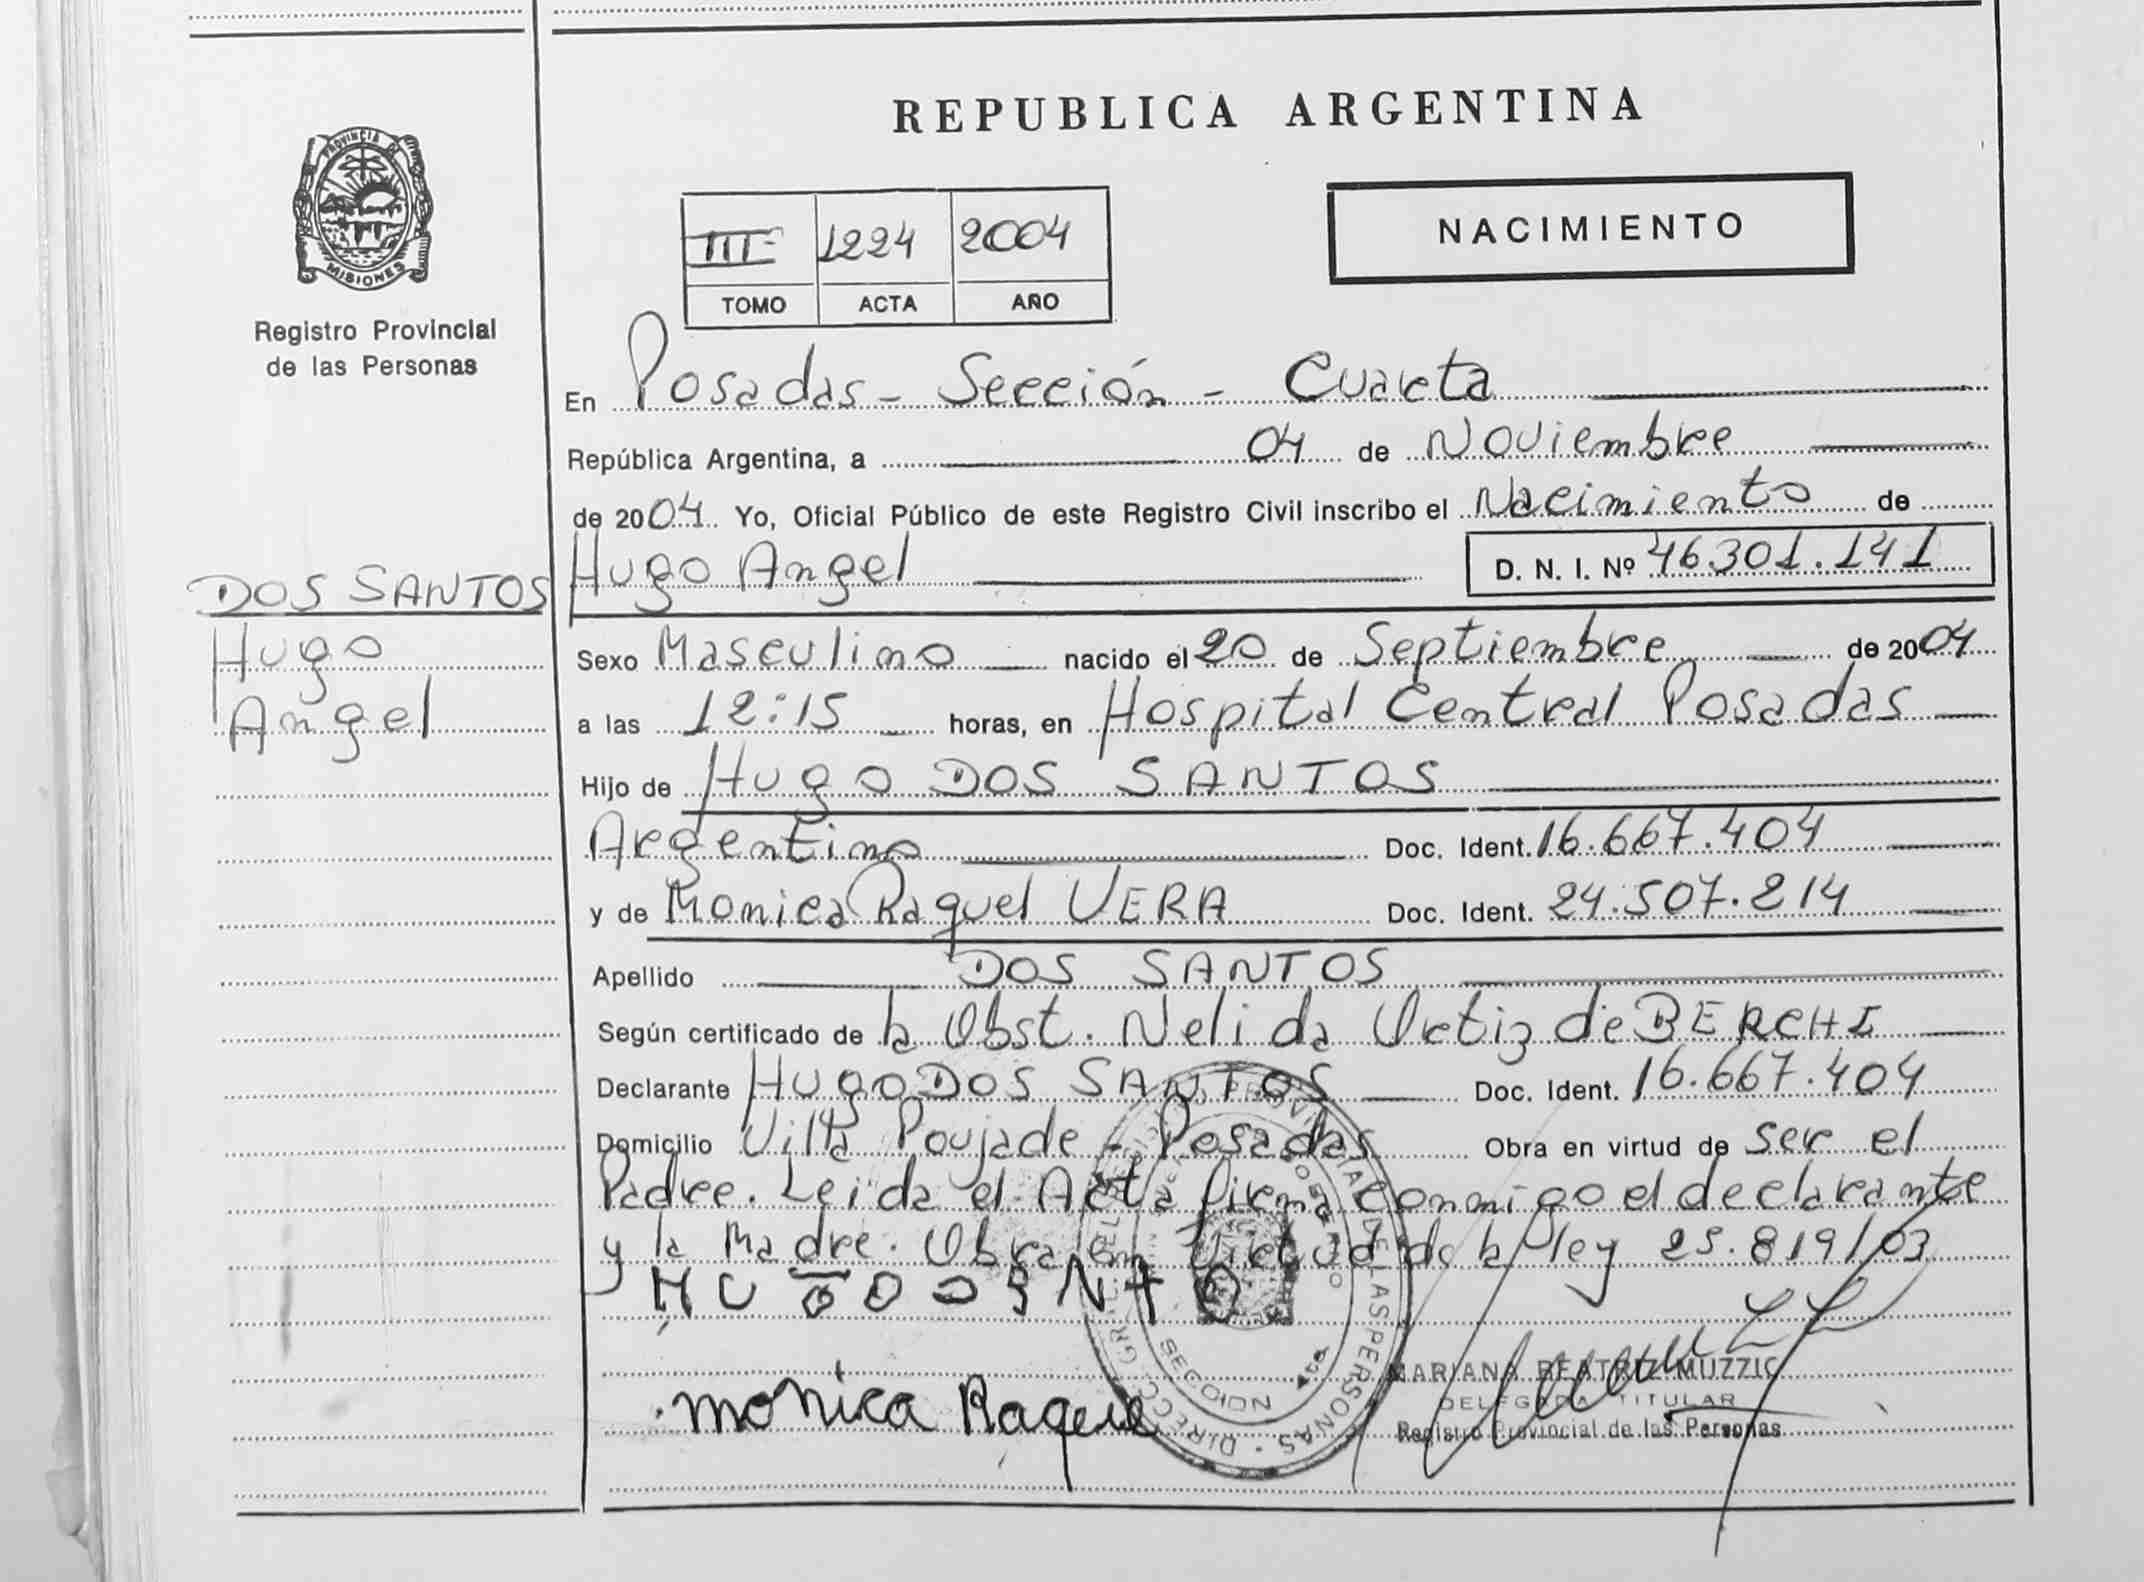 REPUBLICA ARGENTINA
PROVINCIA DE MISIONES
Registro Provincial
de las Personas
III 1224 2004
TOMO ACTA AÑO
NACIMIENTO
En Posadas - Sección - Cuarta
República Argentina, a 04 de Noviembre
de 2004 Yo, Oficial Público de este Registro Civil inscribo el Nacimiento de
Hugo Angel D. N. I. Nº 46.301.141
DOS SANTOS
Hugo
Angel
Sexo Masculino nacido el 20 de Septiembre de 2004
a las 12:15 horas, en Hospital Central Posadas
Hijo de Hugo DOS SANTOS
Argentino Doc. Ident. 16.667.404
y de Monica Raquel VERA Doc. Ident. 24.507.214
Apellido DOS SANTOS
Según certificado de la Obst. Nelida Ortiz de BERCHI
Declarante HUGO DOS SANTOS Doc. Ident. 16.667.404
Domicilio Villa Poujade - Posadas Obra en virtud de ser el
Padre. Leida el Acta firma conmigo el declarante
y la Madre. Obra en Virtud de la ley 25.819/03
monica Raquel
MARIANA BEATRIZ MUZZIC
DELEGADA TITULAR
Registro Provincial de las Personas
PROVINCIAL DE LAS PERSONAS
SECCION 4ta